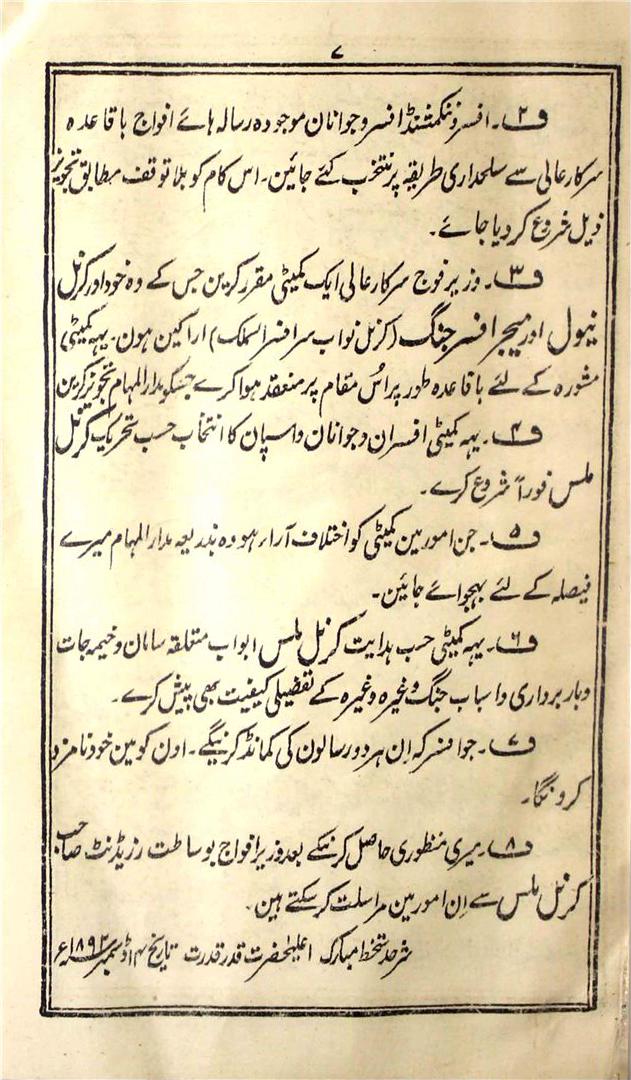 ۷
ف۲۔ افسر و ننکمشنڈ افسر و جوانان موجودہ رسالہ ہائے افواج باقاعدہ
سرکار عالی سے سلحداری طریقہ پر منتخب کئے جائین۔ اس کام کو بلا توقف مطابق تجویز
ذیل شروع کر دیا جائے۔
ف۳۔ وزیر فوج سرکار عالی ایک کمیٹی مقرر کرین جس کے وہ خود اور کرنل
نیول اور میجر افسر جنگ (کرنل نواب سر افسر الملک) اراکین ہون۔ یہہ کمیٹی
مشورہ کے لئے باقاعدہ طور پر اُس مقام پر منعقد ہوا کرے جسکو مدار المہام تجویز کرین
ف۴۔ یہہ کمیٹی افسران و جوانان و اسپان کا انتخاب حسب تحریک کرنل
ملس فوراً شروع کرے۔
ف۵۔ جن امور مین کمیٹی کو اختلاف آراء ہو وہ بذریعہ مدار المہام میرے
فیصلہ کے لئے بہجوائے جائین۔
ف۶۔ یہہ کمیٹی حسب ہدایت کرنل ملس ابواب متعلقہ سامان و خیمہ جات
و باربرداری و اسباب جنگ وغیرہ وغیرہ کے تفضیلی کیفیت بھی پیش کرے۔
ف۷۔ جو افسر کہ اِن ہر دو رسالون کی کمانڈ کرینگے۔ اون کو مین خود نامزد
کرونگا۔
ف۸۔ میری منظوری حاصل کرنیکے بعد وزیر افواج بوساطت رزیڈنٹ صاحب
کرنل ملس سے اِن امور مین مراسلت کر سکتے ہین۔
شرحد ستخط مبارک اعلیٰحضرت قدر قدرت تاریخ ۴ ماہ ڈسمبر ۱۸۹۲ء